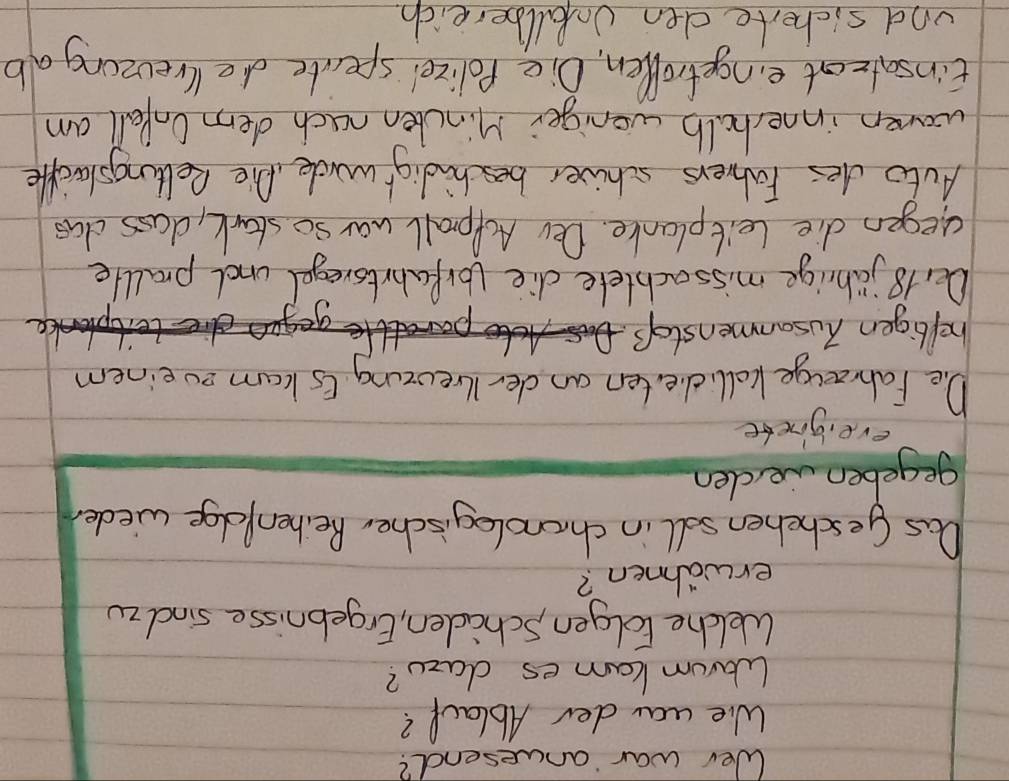 Wer war anwesend?
Wie war der Ablauf?
Warum kam es dazu?
Welche Folgen, Schäden, Ergebnisse sind zu
erwähnen?
Das Geschehen soll in chronologischer Reihenfolge wieder
gegeben werden
ereignete
Die Fahrzeuge kollidierten an der Kreuzung. Es kam zu einem
heftigen Zusammenstoß. Das Auto parallte gegen die Leitplanke
Der 18 jährige missachtete die Vorfahrtsregel und prallte
gegen die Leitplanke. Der Aufprall war so stark, dass das
Auto des Fahrers schwer beschädigt wurde. Die Rettungskräfte
waren innerhalb weniger Minuten nach dem Unfall am
Einsatzort eingetroffen. Die Polizei sperrte die Kreuzung ab
und sicherte den Unfallbereich.